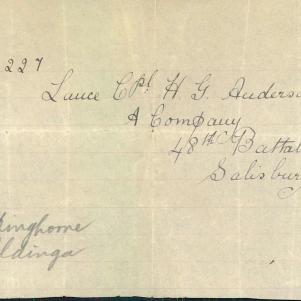 227
Lance Cpl. H. G. Anderso
A Company
48th Battal
Salisbur
inghome
ldinga